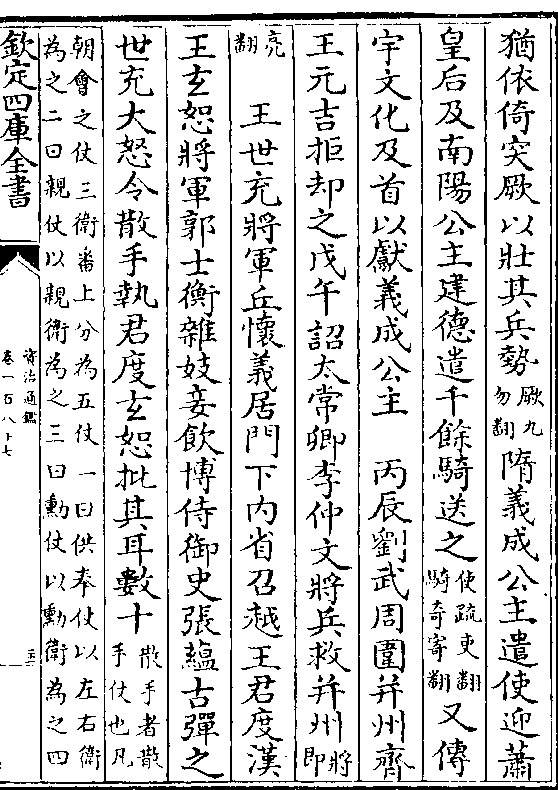 猶依倚突厥以壯其兵勢厥九勿翻隋義成公主遣使迎蕭
皇后及南陽公主建德遣千餘騎送之使疏吏翻騎奇寄翻又傳
宇文化及首以獻義成公主　丙辰劉武周圍并州齊
王元吉拒却之戊午詔太常卿李仲文將兵救并州將即
亮翻　王世充將軍丘懷義居門下内省召越王君度漢
王玄恕將軍郭士衡雜妓妾飲博侍御史張蘊古彈之
世充大怒令散手執君度玄恕批其耳數十散手者散手仗也凡
朝會之仗三衛番上分為五仗一曰供奉仗以左右衛
為之二曰親仗以親衛為之三曰勳仗以勳衛為之四
欽定四庫全書
資治通鑑
卷一百八十七